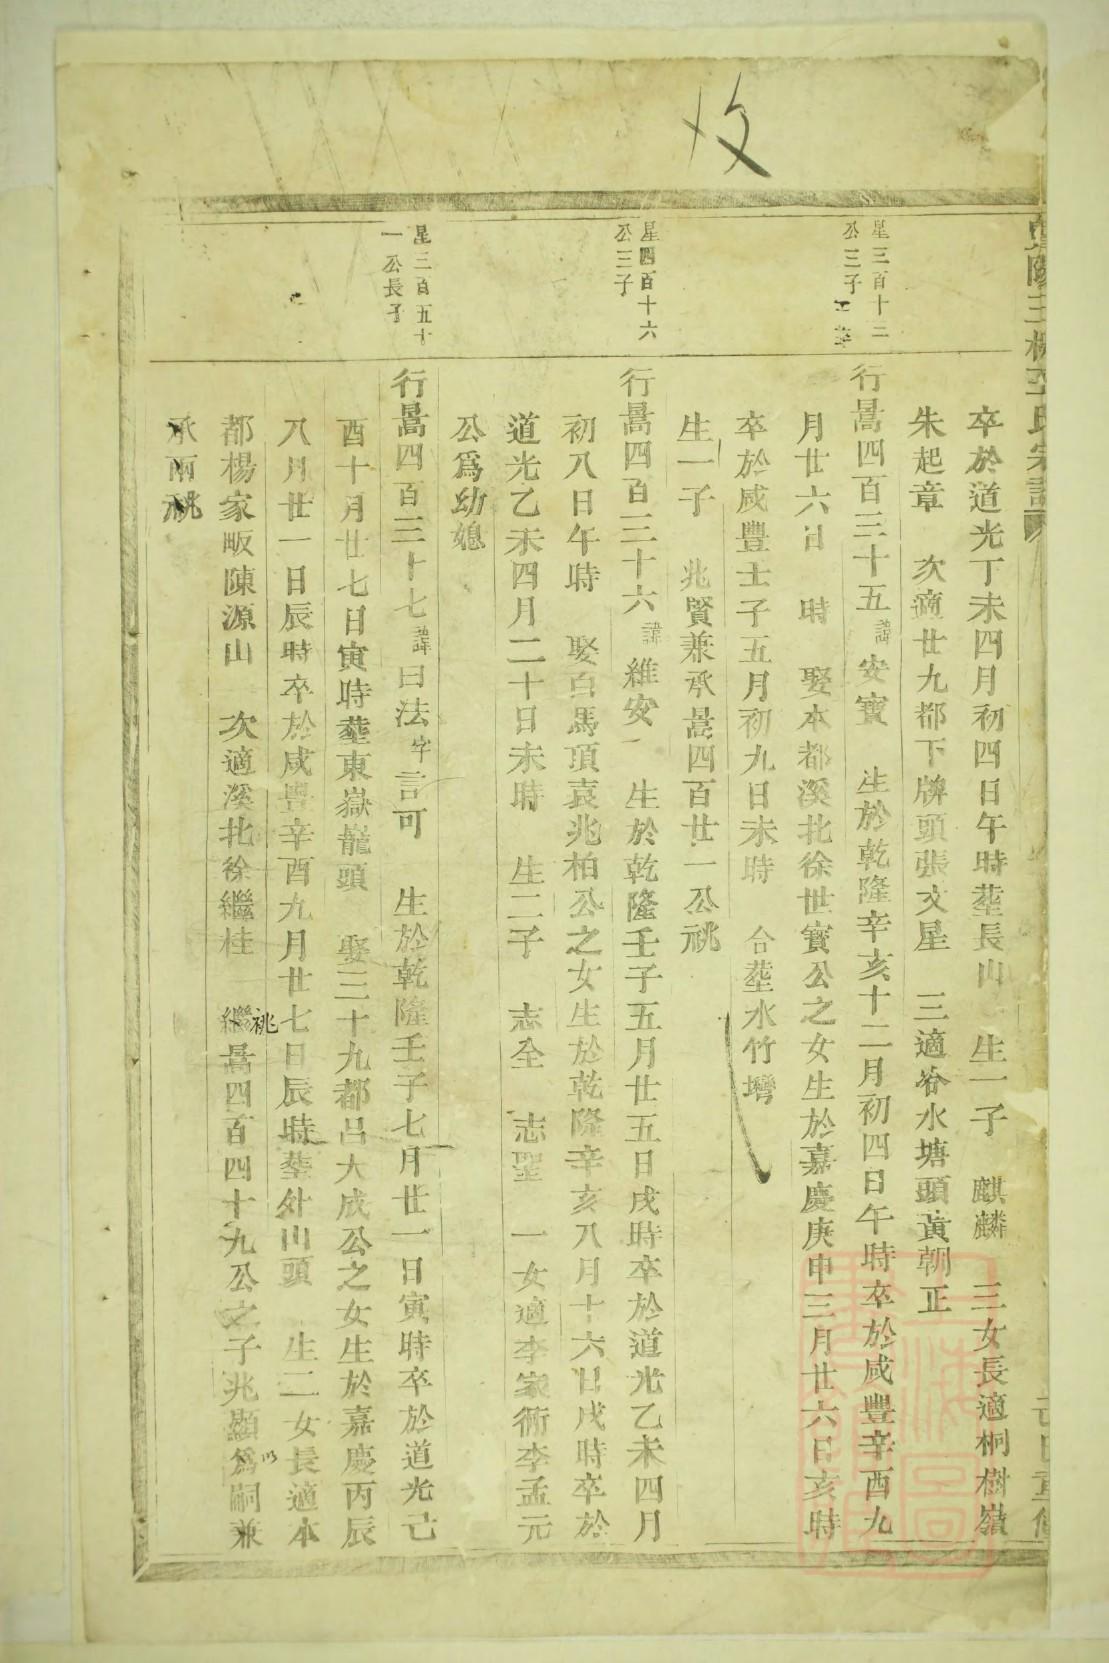 卒於道光丁未四月初四日午時塟長山 生一子 麒麟 三女長適桐樹嶺
朱起章 次適廿九都下牌頭張文星 三適谷水塘頭黃朝正
星三百十二
公三子
行暠四百三十五諱安寶 生於乾隆辛亥十二月初四日午時卒於咸豐辛酉九
月廿六日 時 娶本都溪北徐世寶公之女生於嘉慶庚申三月廿六日亥時
卒於咸豐壬子五月初九日未時 合塟水竹塆
生一子 兆賢兼承暠四百廿一公祧
星四百十六
公三子
行暠四百三十六諱維安 生於乾隆壬子五月廿五日戌時卒於道光乙未四月
初八日午時 娶白馬項袁兆柏公之女生於乾隆辛亥八月十六日戌時卒於
道光乙未四月二十日未時 生二子 志全 志聖 一女適李家衖李孟元
公爲幼媳
星三百五十
一公長子
行暠四百三十七諱曰法字言可 生於乾隆壬子七月廿一日寅時卒於道光己
酉十月廿七日寅時塟東嶽巃頭 娶三十九都呂大成公之女生於嘉慶丙辰
八月廿一日辰時卒於咸豐辛酉九月廿七日辰時塟外山頭 生二女長適本
都楊家畈陳源山 次適溪北徐繼桂 繼祧暠四百四十九公之子兆顯爲嗣兼
承兩祧